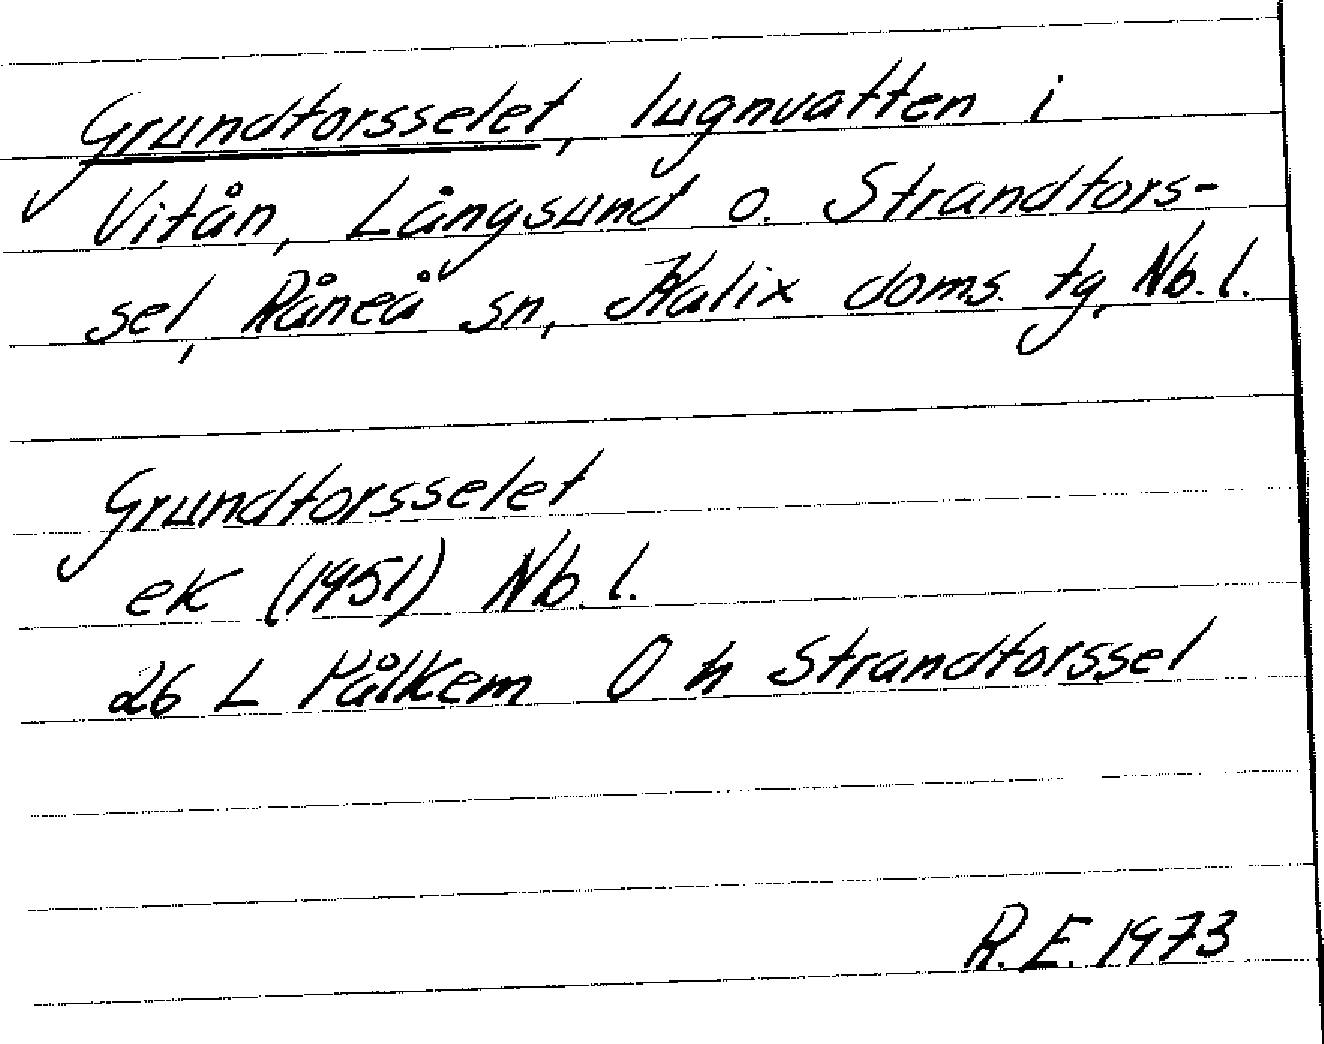 Grundforsselet, lugnvatten i
Vitån, Långsund o. Strandfors-
sel, Råneå sn, Kalix doms. tg, Nb. l.
Grundforsselet
ek (1951) Nb. l.
26 L Pålkem O h Strandforssel
R.E. 1973